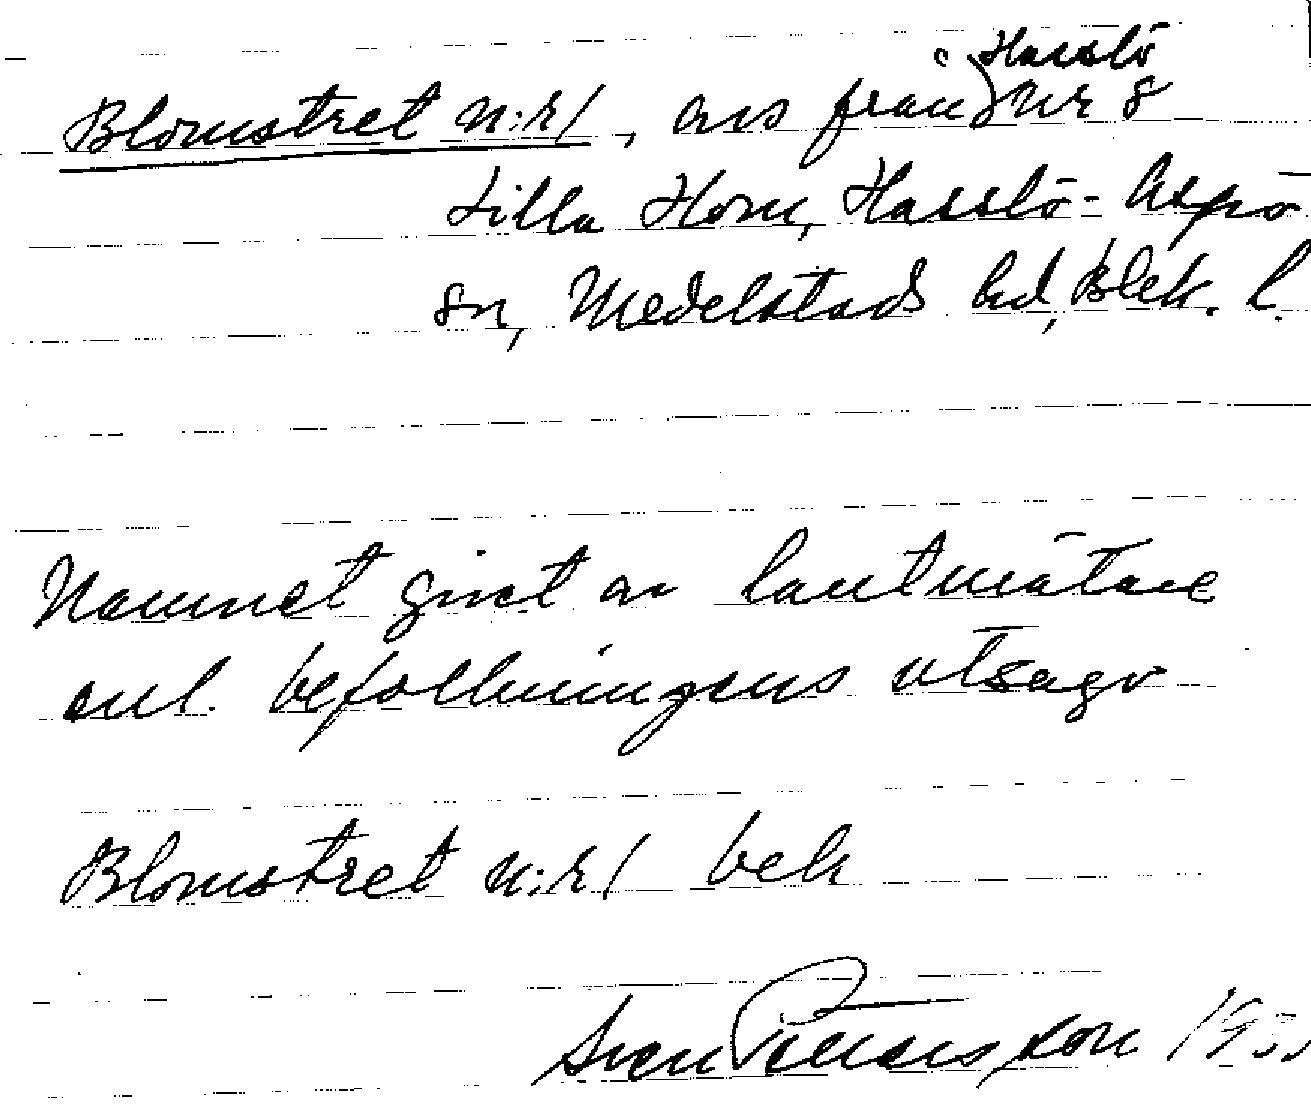 Hasslö
Blomstret n:r 1, avs från nr 8
Lilla Horn, Hasslö-Aspö
sn, Medelstads hd, Blek. l.
Namnet givet av lantmätare
enl. befolkningens utsago
Blomstret n:r 1 bek
Sven Petersson